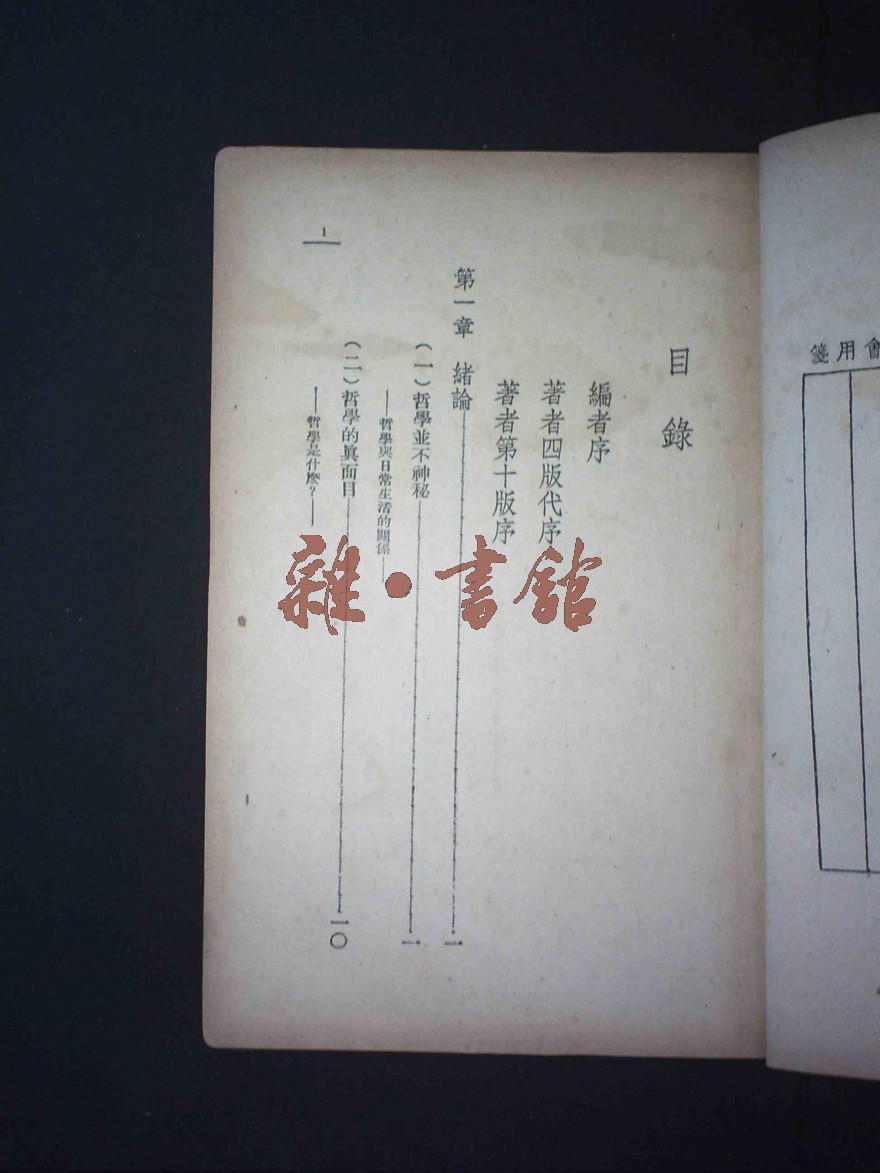 會用箋
目錄
編者序
著者四版代序
著者第十版序
第一章 緒論 一
(一)哲學並不神秘 一
——哲學與日常生活的關係——
(二)哲學的眞面目 一〇
——哲學是什麽?——
1
雜·書館